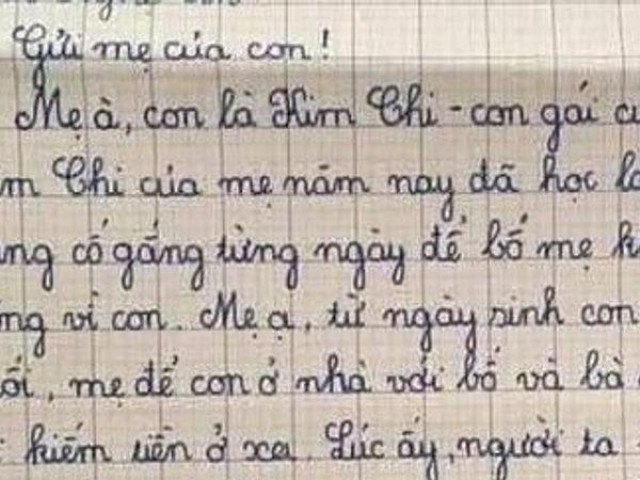 Gửi mẹ của con!
Mẹ à, con là Kim Chi - con gái củ
m Chi của mẹ năm nay đã học lớ
ng cố gắng từng ngày để bố mẹ h
ng vì con. Mẹ ạ, từ ngày sinh con
ổi, mẹ để con ở nhà với bố và bà
kiếm tiền ở xa. Lúc ấy, người ta